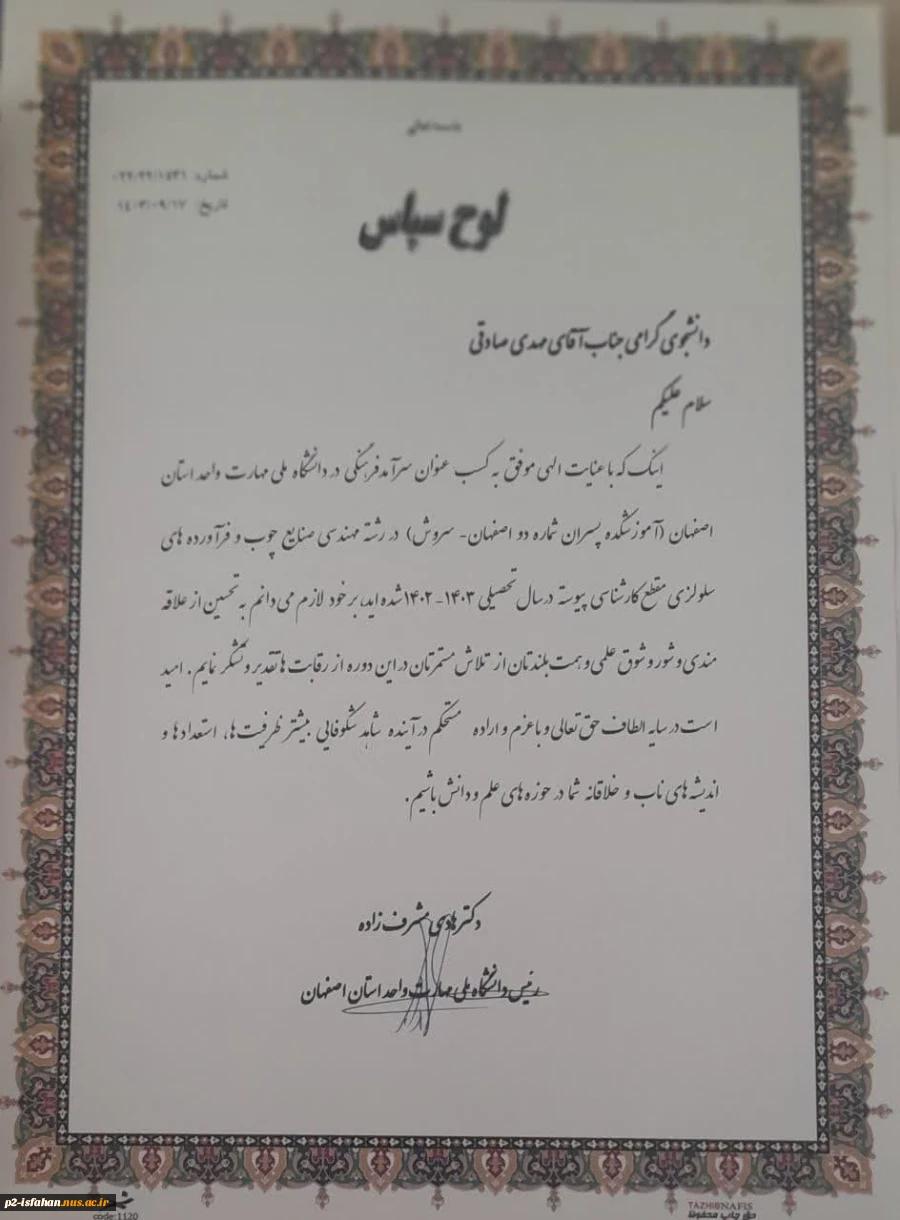 باسمه تعالی
شماره: ۰۲۲/۲۲/۱٤۳۱
تاریخ: ۱٤۰۳/۰۹/۱۷
لوح سپاس
دانشجوی گرامی جناب آقای مهدی صادقی
سلام علیکم
اینک که با عنایت الهی موفق به کسب عنوان سرآمد فرهنگی در دانشگاه ملی مهارت واحد استان
اصفهان (آموزشکده پسران شماره دو اصفهان- سروش) در رشته مهندسی صنایع چوب و فرآورده های
سلولزی مقطع کارشناسی پیوسته در سال تحصیلی ۱۴۰۳-۱۴۰۲ شده اید، بر خود لازم می دانم به تحسین از علاقه
مندی و شور و شوق علمی و همت بلندتان از تلاش مستمرتان در این دوره از رقابت ها تقدیر و تشکر نمایم. امید
است در سایه الطاف حق تعالی و با عزم و اراده مستحکم در آینده شاهد شکوفایی بیشتر ظرفیت ها، استعدادها و
اندیشه های ناب و خلاقانه شما در حوزه های علم و دانش باشیم.
دکتر هادی مشرف زاده
رئیس دانشگاه ملی مهارت واحد استان اصفهان
p2-isfahan.nus.ac.ir
code:1120
TAZHIBNAFIS
حق چاپ محفوظ